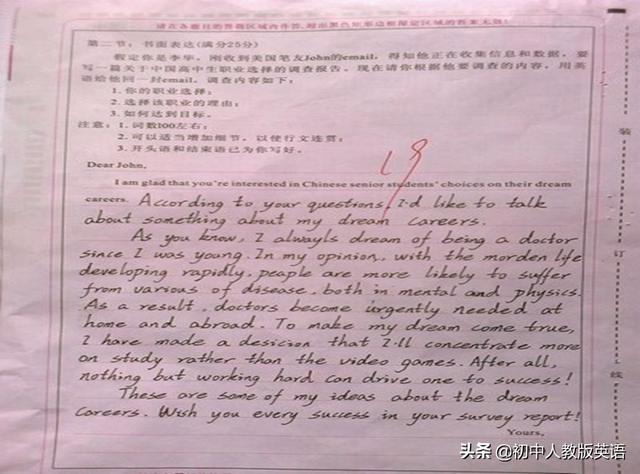 请在各题目的答题区域内作答,超出黑色矩形边框限定区域的答案无效!
第二节:书面表达(满分25分)
假定你是李华,刚收到美国笔友John的email,得知他正在收集信息和数据,要
写一篇关于中国高中生职业选择的调查报告。现在请你根据他要调查的内容,用英
语给他回一封email。调查内容如下:
1. 你的职业选择;
2. 选择该职业的理由;
3. 如何达到目标。
注意:1. 词数100左右;
2. 可以适当增加细节,以使行文连贯;
3. 开头语和结束语已为你写好。
19
Dear John,
I am glad that you're interested in Chinese senior students' choices on their dream
careers. According to your questions, I'd like to talk
about something about my dream careers.
As you know, I alwayls dream of being a doctor
since I was young. In my opinion, with the morden life
developing rapidly, peaple are more likely to suffer
from various of disease, both in mental and physics.
As a result, doctors become urgently needed at
home and abroad. To make my dream come true,
I have made a desicion that I'll concentrate more
on study rather than the video games. After all,
nothing but working hard can drive one to success!
These are some of my ideas about the dream
careers. Wish you every success in your survey report!
Yours,
装
订
线
头条 @初中人教版英语